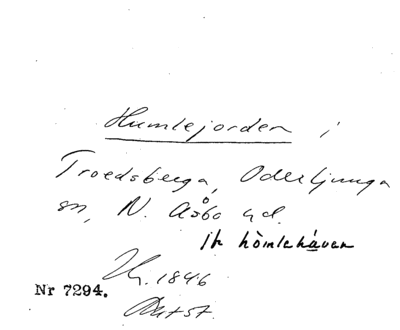 Humlejorden i
Troedsberga, Oderljunga
sn, N. Åsbo hd.
jk hömlehåven
Nr 7294.